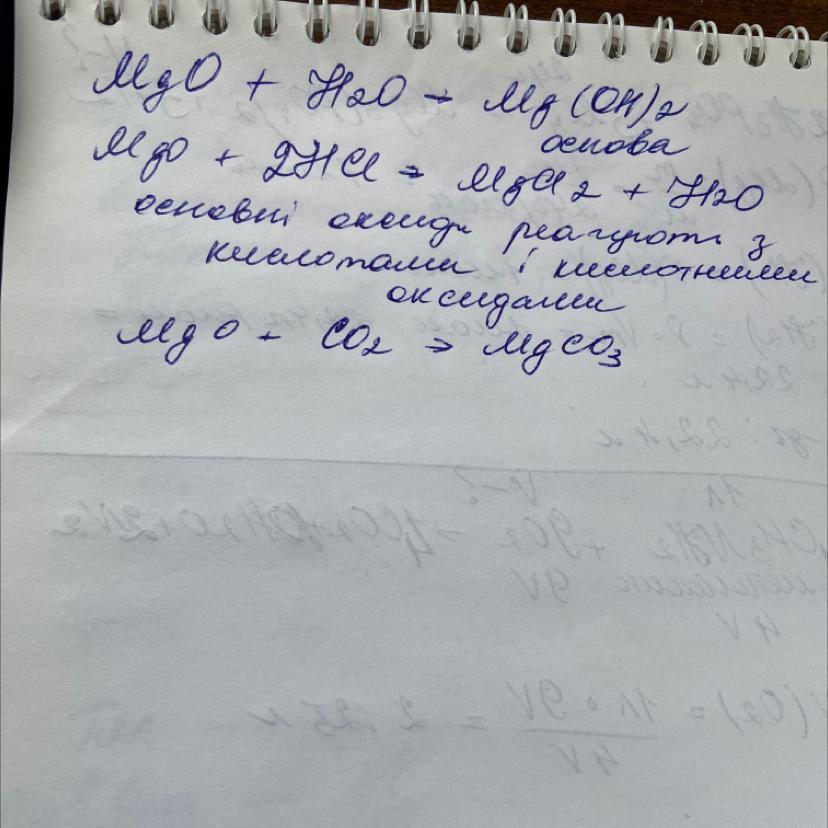 MgO + H2O → Mg(OH)2
основа
MgO + 2HCl → MgCl2 + H2O
основні оксиди реагують з
кислотами і кислотними
оксидами
MgO + CO2 → MgCO3